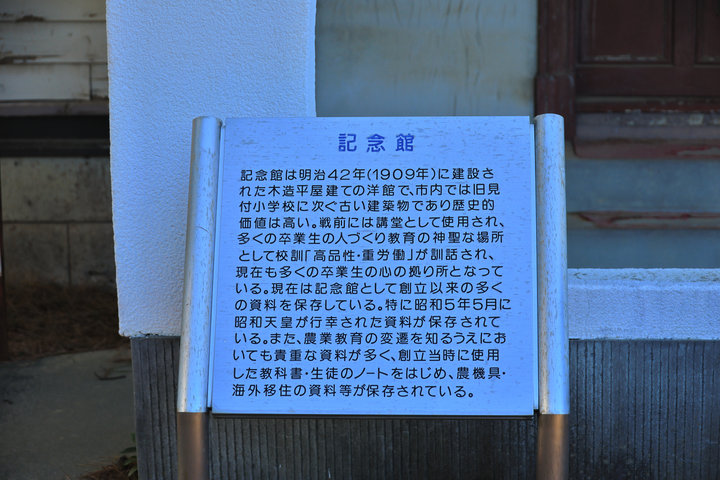 記念館
記念館は明治42年(1909年)に建設さ
れた木造平屋建ての洋館で、市内では旧見
付小学校に次ぐ古い建築物であり歴史的
価値は高い。戦前には講堂として使用され、
多くの卒業生の人づくり教育の神聖な場所
として校訓「高品性・重労働」が訓話され、
現在も多くの卒業生の心の拠り所となって
いる。現在は記念館として創立以来の多く
の資料を保存している。特に昭和5年5月に
昭和天皇が行幸された資料が保存されて
いる。また、農業教育の変遷を知るうえにお
いても貴重な資料が多く、創立当時に使用
した教科書・生徒のノートをはじめ、農機具・
海外移住の資料等が保存されている。